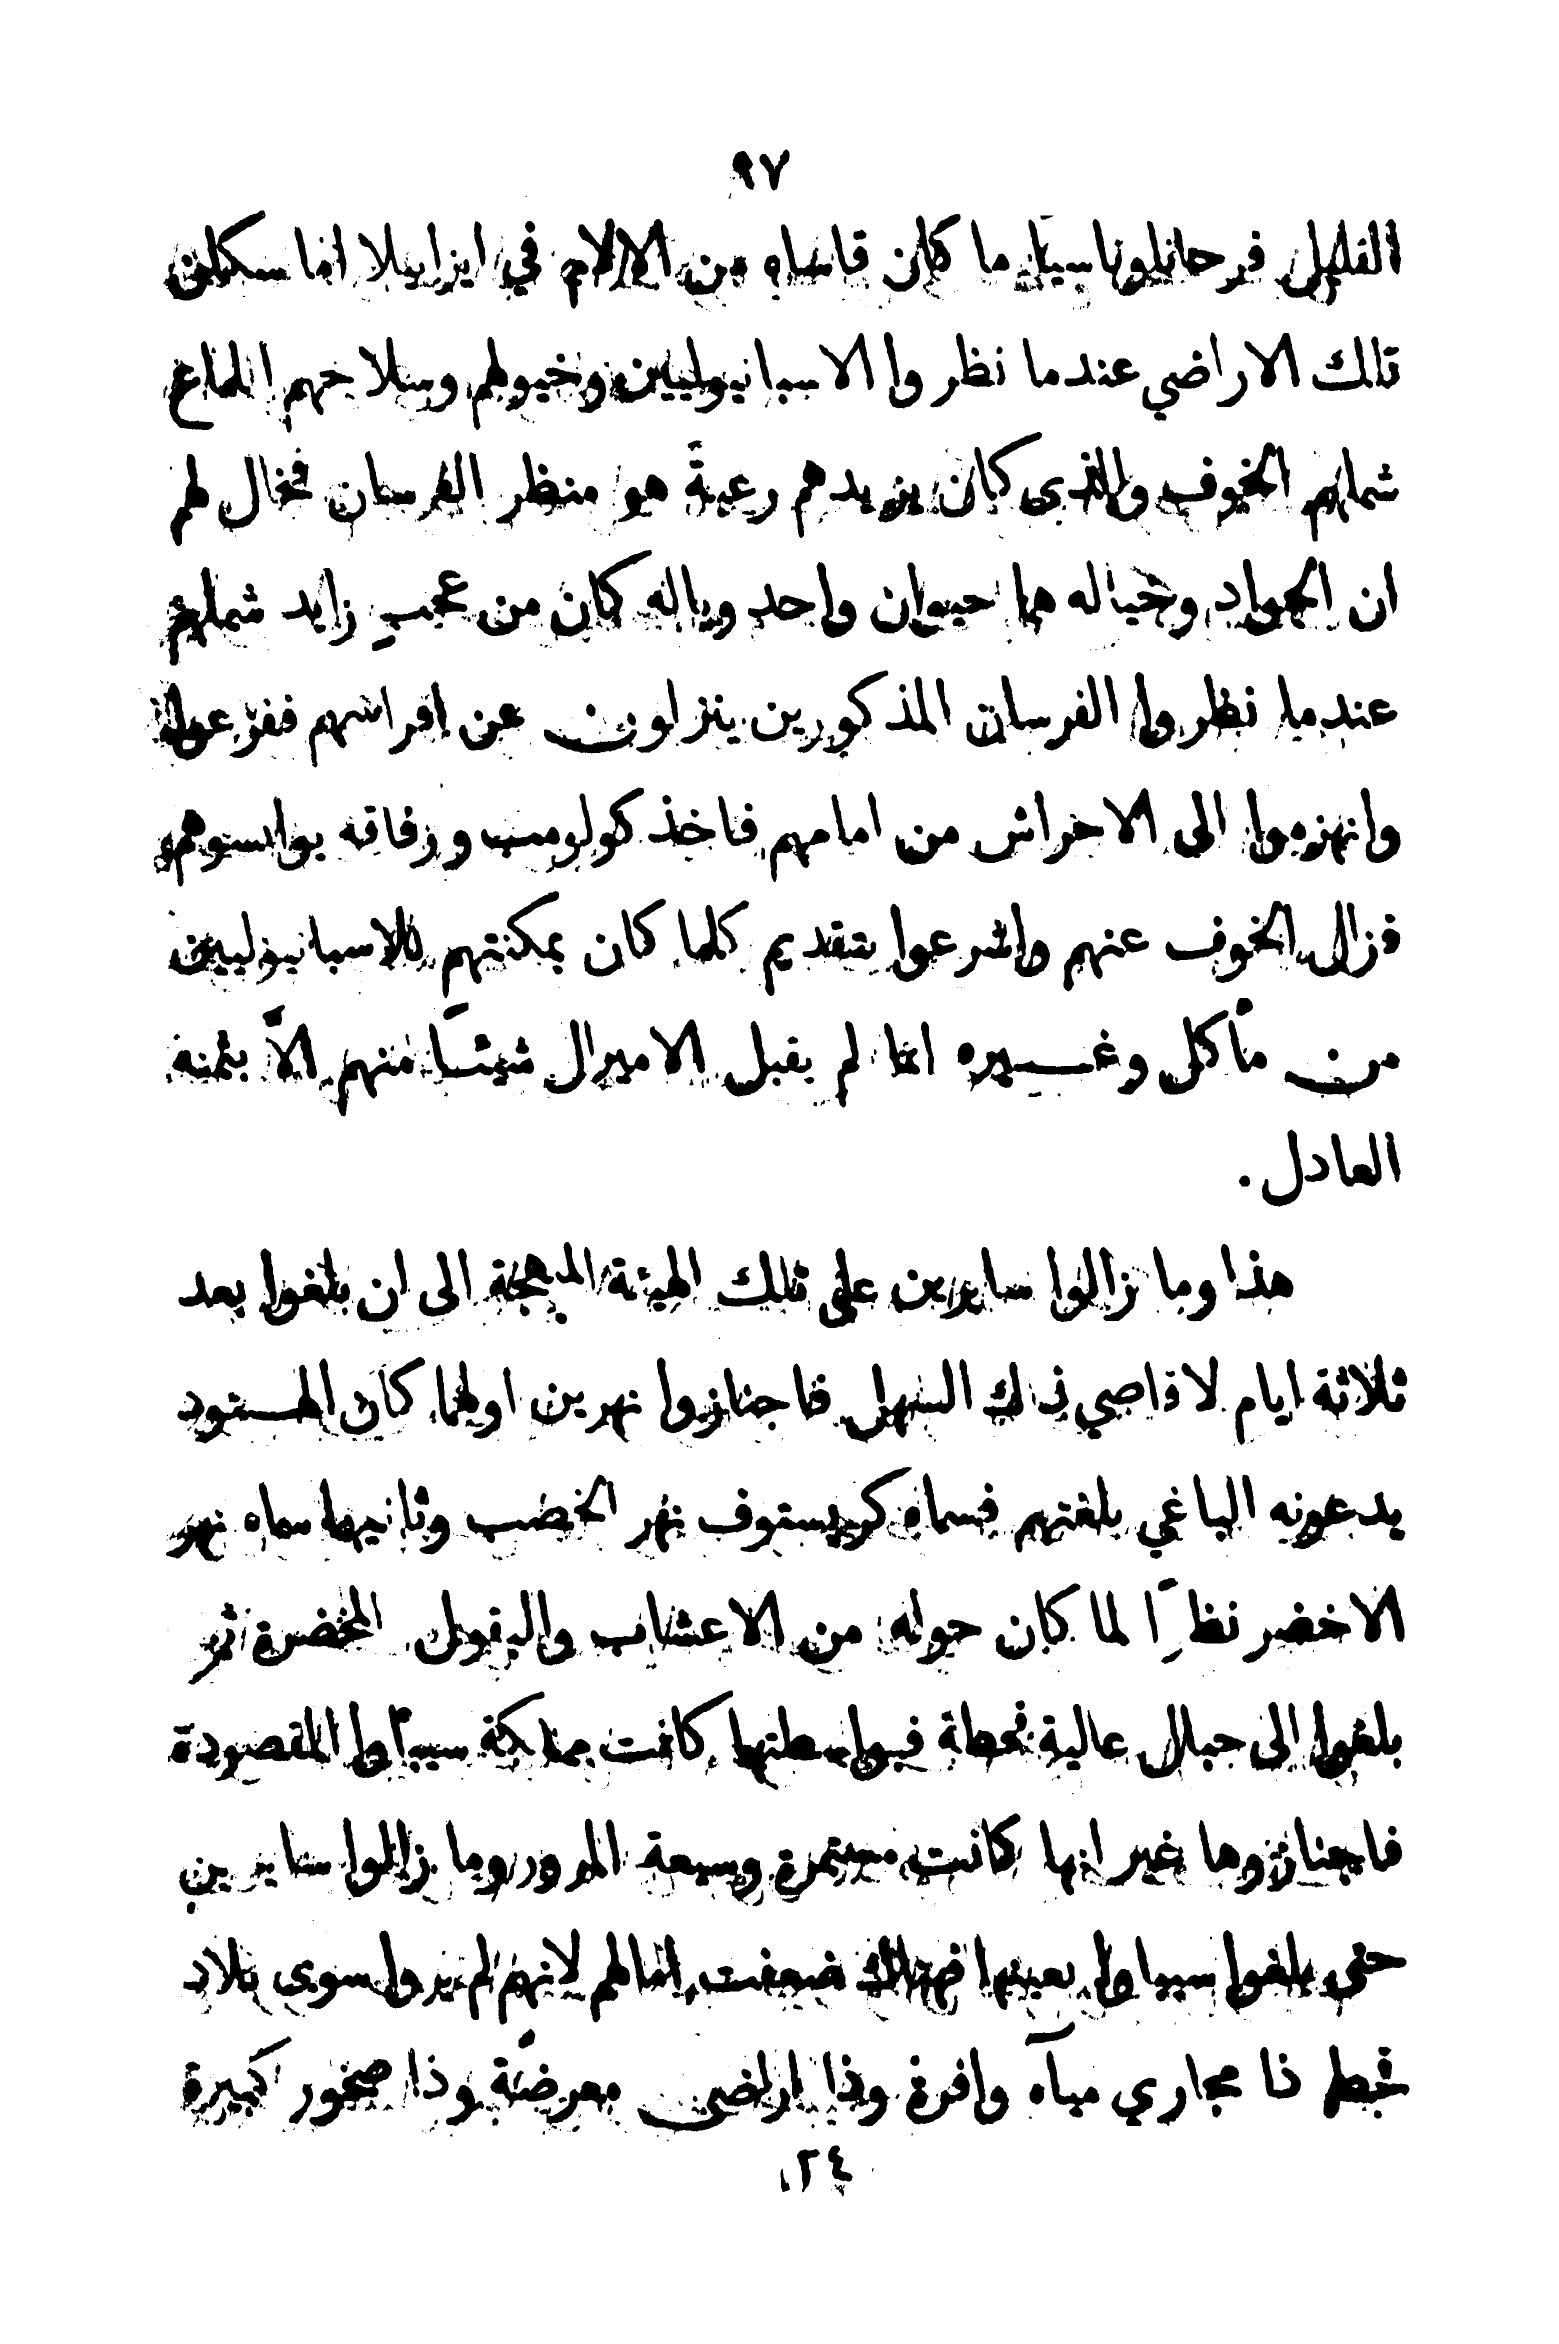 ٩٧
القليل فرحانا وناسيًا ما كان قاساه من الالام في ايزابيلا انما سكان
تلك الاراضي عندما نظروا الاسبانيوليين وخيولهم وسلاحهم اللماع
شملهم الخوف والذى كان يزيدهم رعبةً هو منظر الفرسان فخال لهم
ان الجواد وخياله هما حيوان واحد وياله كان من عجبٍ زايد شملهم
عندما نظروا الفرسان المذكورين ينزلون عن افراسهم ففزعوا
وانهزموا الى الاحراش من امامهم فاخذ كولومب ورفاقه يوانسوهم
فزال الخوف عنهم واشرعوا بتقديم كلما كان يمكنتهم للاسبانيوليين
من مأكل وغيره انما لم يقبل الاميرال شيئًا منهم الاَّ بثمنه
العادل .
هذا وما زالوا سايرين على تلك الهيئة المبهجة الى ان بلغوا بعد
ثلاثة ايام لاقاصي ذلك السهل فاجتازوا نهرين اولهما كان الهنود
يدعونه الياغي بلغتهم فسماه كريستوف نهر الخصب وثانيهما سماه نهر
الاخضر نظرًا لما كان حوله من الاعشاب والبقول المخضرة ثم
بلغوا الى جبال عالية محطة فبواسطتها كانت مملكة سيباوا المقصودة
فاجتازوها غير انها كانت مستمرة وسيعة المرور وما زالوا سايرين
حتى بلغوا سيباوا بعينها فهنالك ضعفت امالهم لانهم لم يروا سوى بلاد
قحط ذا مجاري مياه وافرة وذا اراضى معرضة وذا صخور كبيرة
٢٤